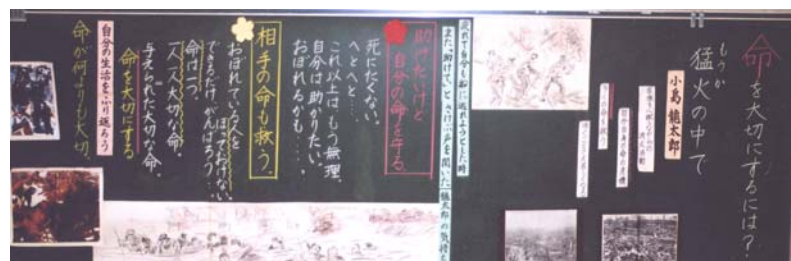 命を大切にするには?
もうか
猛火の中で
小島 龍太郎
また「助けて」とさけぶ声を聞いた龍太郎の気持ち
助けたいけど
自分の命を守る
死にたくない。
へとへと…。
これ以上はもう無理。
自分は助かりたい。
おぼれるかも…。
相手の命も救う。
おぼれている人を
ほっておけない。
できるだけがんばろう…
命は一つ
一人一人大切な命。
与えられた大切な命。
命を大切にする
自分の生活をふり返ろう
命が何よりも大切。